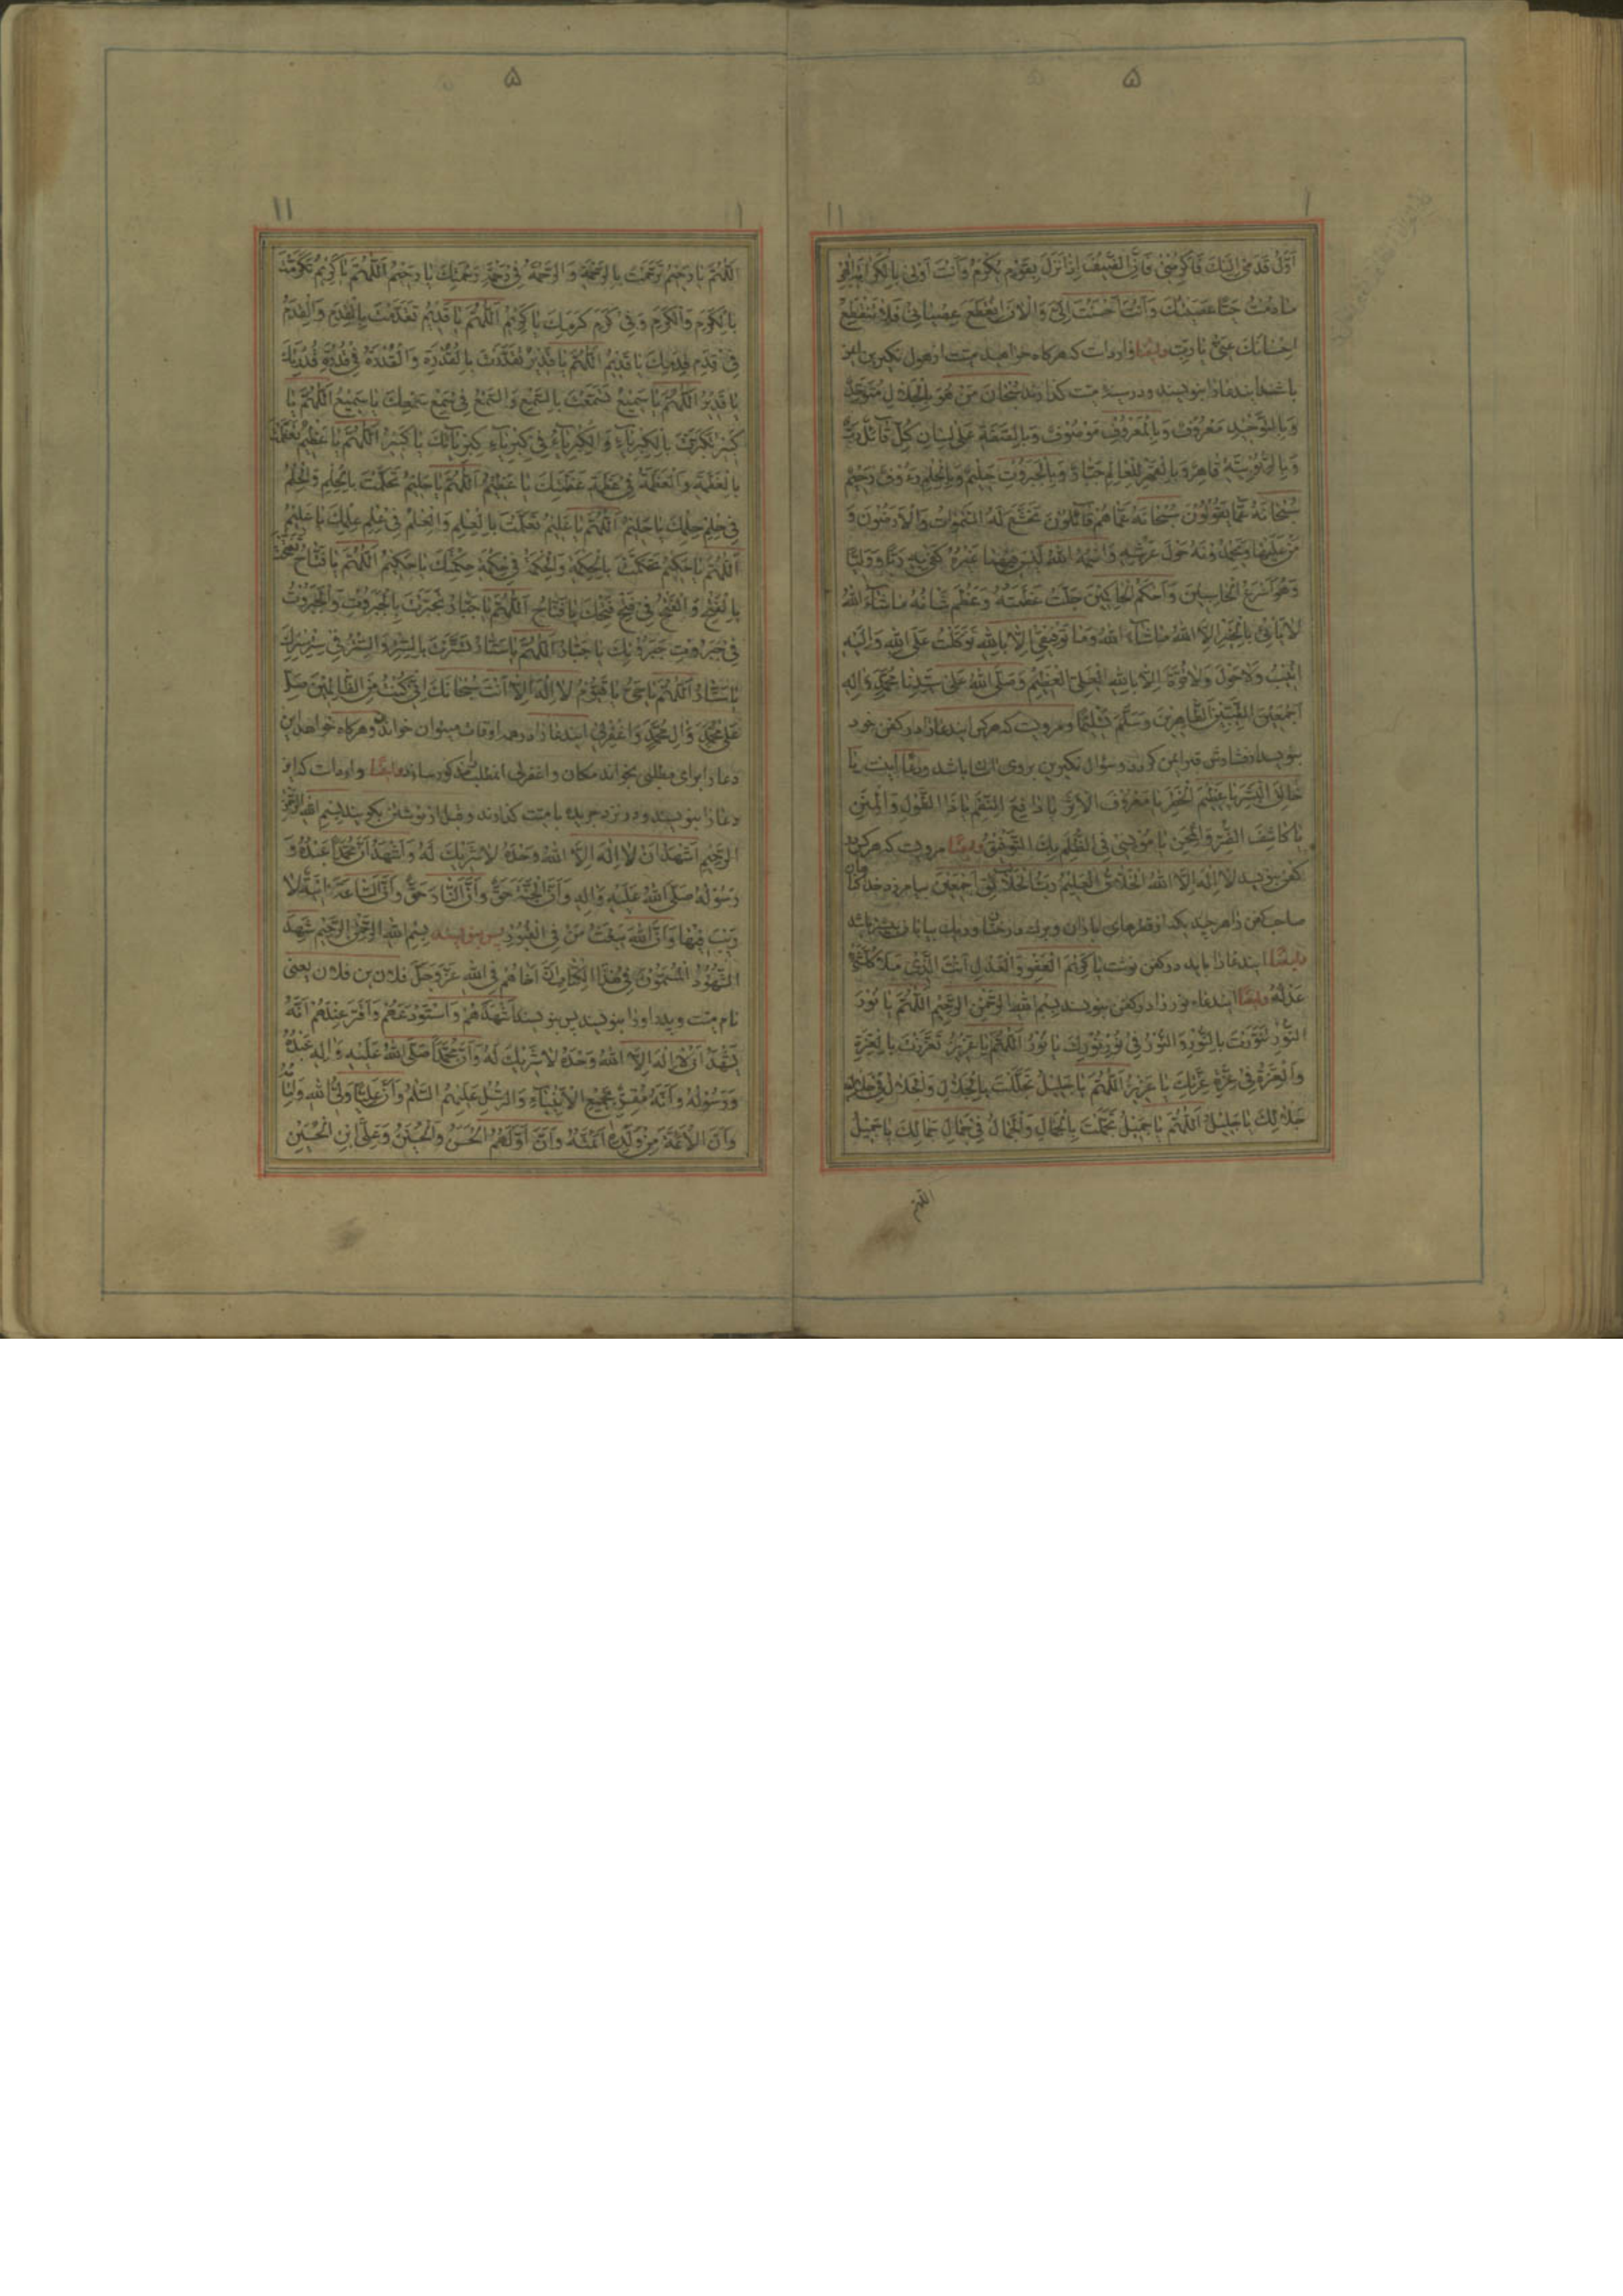 ۵
۱
۱۱
اَوَّلُ قَدَمى اِلَيْكَ فَاَكْرِمْنى فَاِنَّ الضَّيْفَ اِذا نَزَلَ بِقَوْمٍ يُكْرَمُ وَاَنْتَ اَوْلى بِالْكَرَمِ
ما دُمْتُ حَيّاً عَصَيْتُكَ وَاَنْتَ اَحْسَنْتَ اِلَىَّ وَالْانَ انْقَطَعَ عِصْيانى فَلا تَنْقَطِعْ
اِحْسانَكَ عَنّى يا رَبِّ وايضا وارد است که هرکاه خواهند ميت از هول نکيرين ايمن
باشد ايندعا را بنويسند و در سينه ميت کذارند سُبْحانَ مَنْ هُوَ بِالْجَلالِ مُتَوَحِّدٌ
وَبِالتَّوْحيدِ مَعْرُوفٌ وَبِالْمَعْرُوفِ مَوْصُوفٌ وَبِالصِّفَةِ عَلى لِسانِ كُلِّ قائِلٍ رَبٌّ
وَبِالرُّبُوبِيَّةِ قاهِرٌ وَبِالْقَهْرِ لِلْعالَمِ جَبّارٌ وَبِالْجَبَرُوتِ حَليمٌ وَبِالْحِلْمِ رَءُوفٌ رَحيمٌ
سُبْحانَهُ عَمّا يَقُولُونَ سُبْحانَهُ عَمّا هُمْ قائِلُونَ تَخَشَّعَ لَهُ السَّمواتُ وَالْاَرَضُونَ وَ
مَنْ عَلَيْها وَيَحْمَدُونَهُ حَوْلَ عَرْشِهِ وَاسْمُهُ اللهُ لَيْسَ فيهِما غَيْرُهُ كَفى بِهِ رَبّاً وَوَلِيّاً
وَهُوَ اَسْرَعُ الْحاسِبينَ وَاَحْكَمُ الْحاكِمينَ جَلَّتْ عَظَمَتُهُ وَعَظُمَ شَانُهُ ماشاءَ اللهُ
لا يَاْتى بِالْخَيْرِ اِلَّا اللهُ ماشاءَ اللهُ وَما تَوْفيقى اِلّا بِاللهِ تَوَكَّلْتُ عَلَى اللهِ وَاِلَيْهِ
اُنيبُ وَلا حَوْلَ وَلا قُوَّةَ اِلّا بِاللهِ الْعَلِىِّ الْعَظيمِ وَصَلَّى اللهُ عَلى سَيِّدِنا مُحَمَّدٍ وَالِهِ
اَجْمَعينَ الطَّيِّبينَ الطّاهِرينَ وَسَلَّمَ تَسْليماً ومرويست که هرکس ايندعا را در کفن خود
بنويسد از فشارش قبر ايمن کردد وسؤال نکيرين بروى اسان باشد ودعا اينست يا
خالِقَ الْبَشَرِ يا عَظيمَ الْخَطَرِ يا مَعْرُوفَ الْاَثَرِ يا دافِعَ النِّقَمِ يا ذَا الطَّوْلِ وَالْمِنَنِ
يا كاشِفَ الضُّرِّ وَالْمِحَنِ يا مُونِسى فِى الظُّلَمِ بِكَ التَّوْفيقُ وايضا مرويست که هرکس بر
کفن بنويسد لا اِلهَ اِلَّا اللهُ الْخَلّاقُ الْعَليمُ رَبُّ الْخَلائِقِ اَجْمَعينَ بيامرزد خدا کناهان
صاحب کفن را هرچند بعدد قطرهاى باران وبرک درختان وريک بيابان بيشتر باشد
وايضا ايندعا را بايد در کفن نوشت يا كَريمَ الْعَفْوِ وَالْعَدْلِ اَنْتَ الَّذى مَلَأَ كُلَّ شَىْءٍ
عَدْلُهُ وايضا ايندعاء نور را در کفن بنويسند بِسْمِ اللهِ الرَّحْمنِ الرَّحيمِ اَللّهُمَّ يا نُورُ
تَنَوَّرْتَ بِالنُّورِ وَالنُّورُ فى نُورِ نُورِكَ يا نُورُ اَللّهُمَّ يا عَزيزُ تَعَزَّزْتَ بِالْعِزَّةِ
وَالْعِزَّةُ فى عِزَّةِ عِزَّتِكَ يا عَزيزُ اَللّهُمَّ يا جَليلُ تَجَلَّلْتَ بِالْجَلالِ وَالْجَلالُ فى جَلالِ
جَلالِكَ يا جَليلُ اَللّهُمَّ يا جَميلُ تَجَمَّلْتَ بِالْجَمالِ وَالْجَمالُ فى جَمالِ جَمالِكَ يا جَميلُ
اللهم
۵
۱
۱۱
اَللّهُمَّ يا رَحيمُ تَرَحَّمْتَ بِالرَّحْمَةِ وَالرَّحْمَةُ فى رَحْمَةِ رَحْمَتِكَ يا رَحيمُ اَللّهُمَّ يا كَريمُ تَكَرَّمْتَ
بِالْكَرَمِ وَالْكَرَمُ فى كَرَمِ كَرَمِكَ يا كَريمُ اَللّهُمَّ يا قَديمُ تَقَدَّمْتَ بِالْقِدَمِ وَالْقِدَمُ
فى قِدَمِ قِدَمِكَ يا قَديمُ اَللّهُمَّ يا قَديرُ تَقَدَّرْتَ بِالْقُدْرَةِ وَالْقُدْرَةُ فى قُدْرَةِ قُدْرَتِكَ
يا قَديرُ اَللّهُمَّ يا سَميعُ تَسَمَّعْتَ بِالسَّمْعِ وَالسَّمْعُ فى سَمْعِ سَمْعِكَ يا سَميعُ اَللّهُمَّ يا
كَبيرُ تَكَبَّرْتَ بِالْكِبْرِياءِ وَالْكِبْرِياءُ فى كِبْرِياءِ كِبْرِيائِكَ يا كَبيرُ اَللّهُمَّ يا عَظيمُ تَعَظَّمْتَ
بِالْعَظَمَةِ وَالْعَظَمَةُ فى عَظَمَةِ عَظَمَتِكَ يا عَظيمُ اَللّهُمَّ يا حَليمُ تَحَلَّمْتَ بِالْحِلْمِ وَالْحِلْمُ
فى حِلْمِ حِلْمِكَ يا حَليمُ اَللّهُمَّ يا عَليمُ تَعَلَّمْتَ بِالْعِلْمِ وَالْعِلْمُ فى عِلْمِ عِلْمِكَ يا عَليمُ
اَللّهُمَّ يا حَكيمُ تَحَكَّمْتَ بِالْحِكْمَةِ وَالْحِكْمَةُ فى حِكْمَةِ حِكْمَتِكَ يا حَكيمُ اَللّهُمَّ يا فَتّاحُ تَفَتَّحْتَ
بِالْفَتْحِ وَالْفَتْحُ فى فَتْحِ فَتْحِكَ يا فَتّاحُ اَللّهُمَّ يا جَبّارُ تَجَبَّرْتَ بِالْجَبَرُوتِ وَالْجَبَرُوتُ
فى جَبَرُوتِ جَبَرُوتِكَ يا جَبّارُ اَللّهُمَّ يا سَتّارُ تَسَتَّرْتَ بِالسِّتْرِ وَالسِّتْرُ فى سِتْرِ سِتْرِكَ
يا سَتّارُ اَللّهُمَّ يا حَىُّ يا قَيُّومُ لا اِلهَ اِلّا اَنْتَ سُبْحانَكَ اِنّى كُنْتُ مِنَ الظّالِمينَ صَلِّ
عَلى مُحَمَّدٍ وَالِ مُحَمَّدٍ وَاغْفِرْلى ايندعا را در همه اوقات ميتوان خواند وهرکاه خواهد اين
دعا را براى مطلبى بخواند مکان واغفرلى انمطلب مذکور سازد وايضا وارد است که اين
دعا را بنويسند ودر نزد جريده با ميت کذارند وقبل از نوشتن بکويند بِسْمِ اللهِ الرَّحْمنِ
الرَّحيمِ اَشْهَدُ اَنْ لا اِلهَ اِلَّا اللهُ وَحْدَهُ لا شَريكَ لَهُ وَاَشْهَدُ اَنَّ مُحَمَّداً عَبْدُهُ وَ
رَسُولُهُ صَلَّى اللهُ عَلَيْهِ وَالِهِ وَاَنَّ الْجَنَّةَ حَقٌّ وَاَنَّ النّارَ حَقٌّ وَاَنَّ السّاعَةَ اتِيَةٌ لا
رَيْبَ فيها وَاَنَّ اللهَ يَبْعَثُ مَنْ فِى الْقُبُورِ پس بنويسند بِسْمِ اللهِ الرَّحْمنِ الرَّحيمِ شَهِدَ
الشُّهُودُ الْمُسَمَّوْنَ فى هذَا الْكِتابِ اَنَّ اَخاهُمْ فِى اللهِ عَزَّ وَجَلَّ فلان بن فلان يعنى
نام ميت وپدر او را بنويسد پس بنويسند اَشْهَدَهُمْ وَاسْتَوْدَعَهُمْ وَاَقَرَّ عِنْدَهُمْ اَنَّهُ
يَشْهَدُ اَنْ لا اِلهَ اِلَّا اللهُ وَحْدَهُ لا شَريكَ لَهُ وَاَنَّ مُحَمَّداً صَلَّى اللهُ عَلَيْهِ وَالِهِ عَبْدُهُ
وَرَسُولُهُ وَاَنَّهُ مُقِرٌّ بِجَميعِ الْاَنْبِياءِ وَالرُّسُلِ عَلَيْهِمُ السَّلامُ وَاَنَّ عَلِيّاً وَلِىُّ اللهِ
وَاَنَّ الْاَئِمَّةَ مِنْ وُلْدِهِ اَئِمَّتُهُ وَاَنَّ اَوَّلَهُمُ الْحَسَنُ وَالْحُسَيْنُ وَعَلِىُّ ابْنُ الْحُسَيْنِ